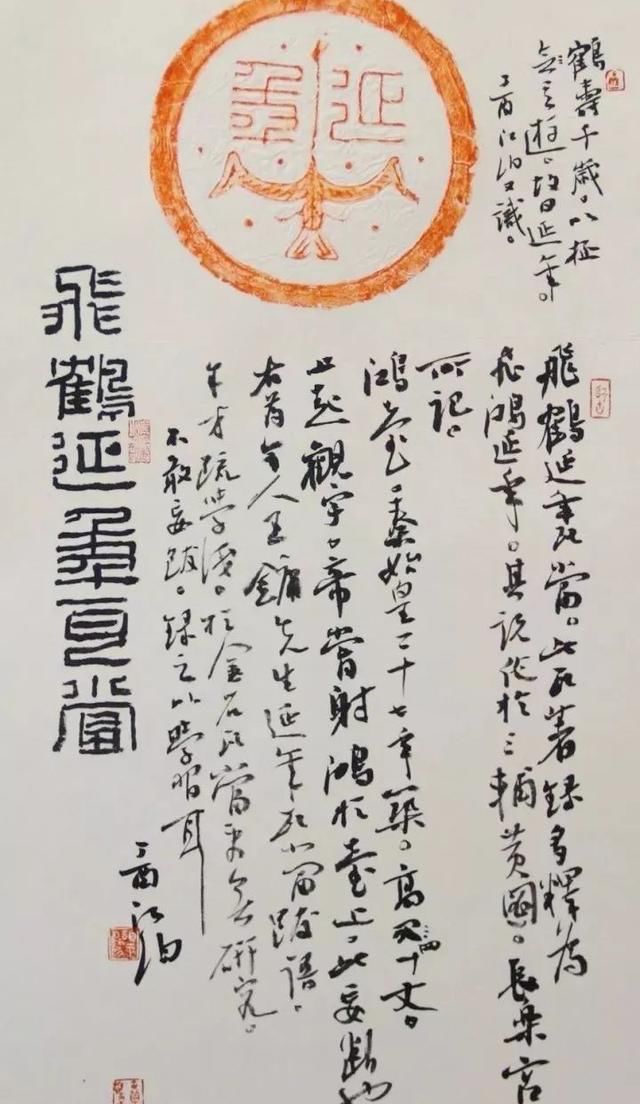 延年
鶴壽千歲。以極
遊。故曰延年。
丁酉江泊又識。
飛鶴延年瓦當。此瓦著錄多釋為
飛鴻延年。其說於三輔黃圖。長樂宮
所記。
鴻臺。秦始皇二十七年築。高四十丈。
上起觀宇。帝嘗射鴻於臺上。此妄斷也
右為今人王鏞先生延年瓦當跋語。
才疏學淺。於金石瓦當素無研究。
不敢妄跋。錄之以學習耳
丁酉江泊
飛鶴延年瓦當